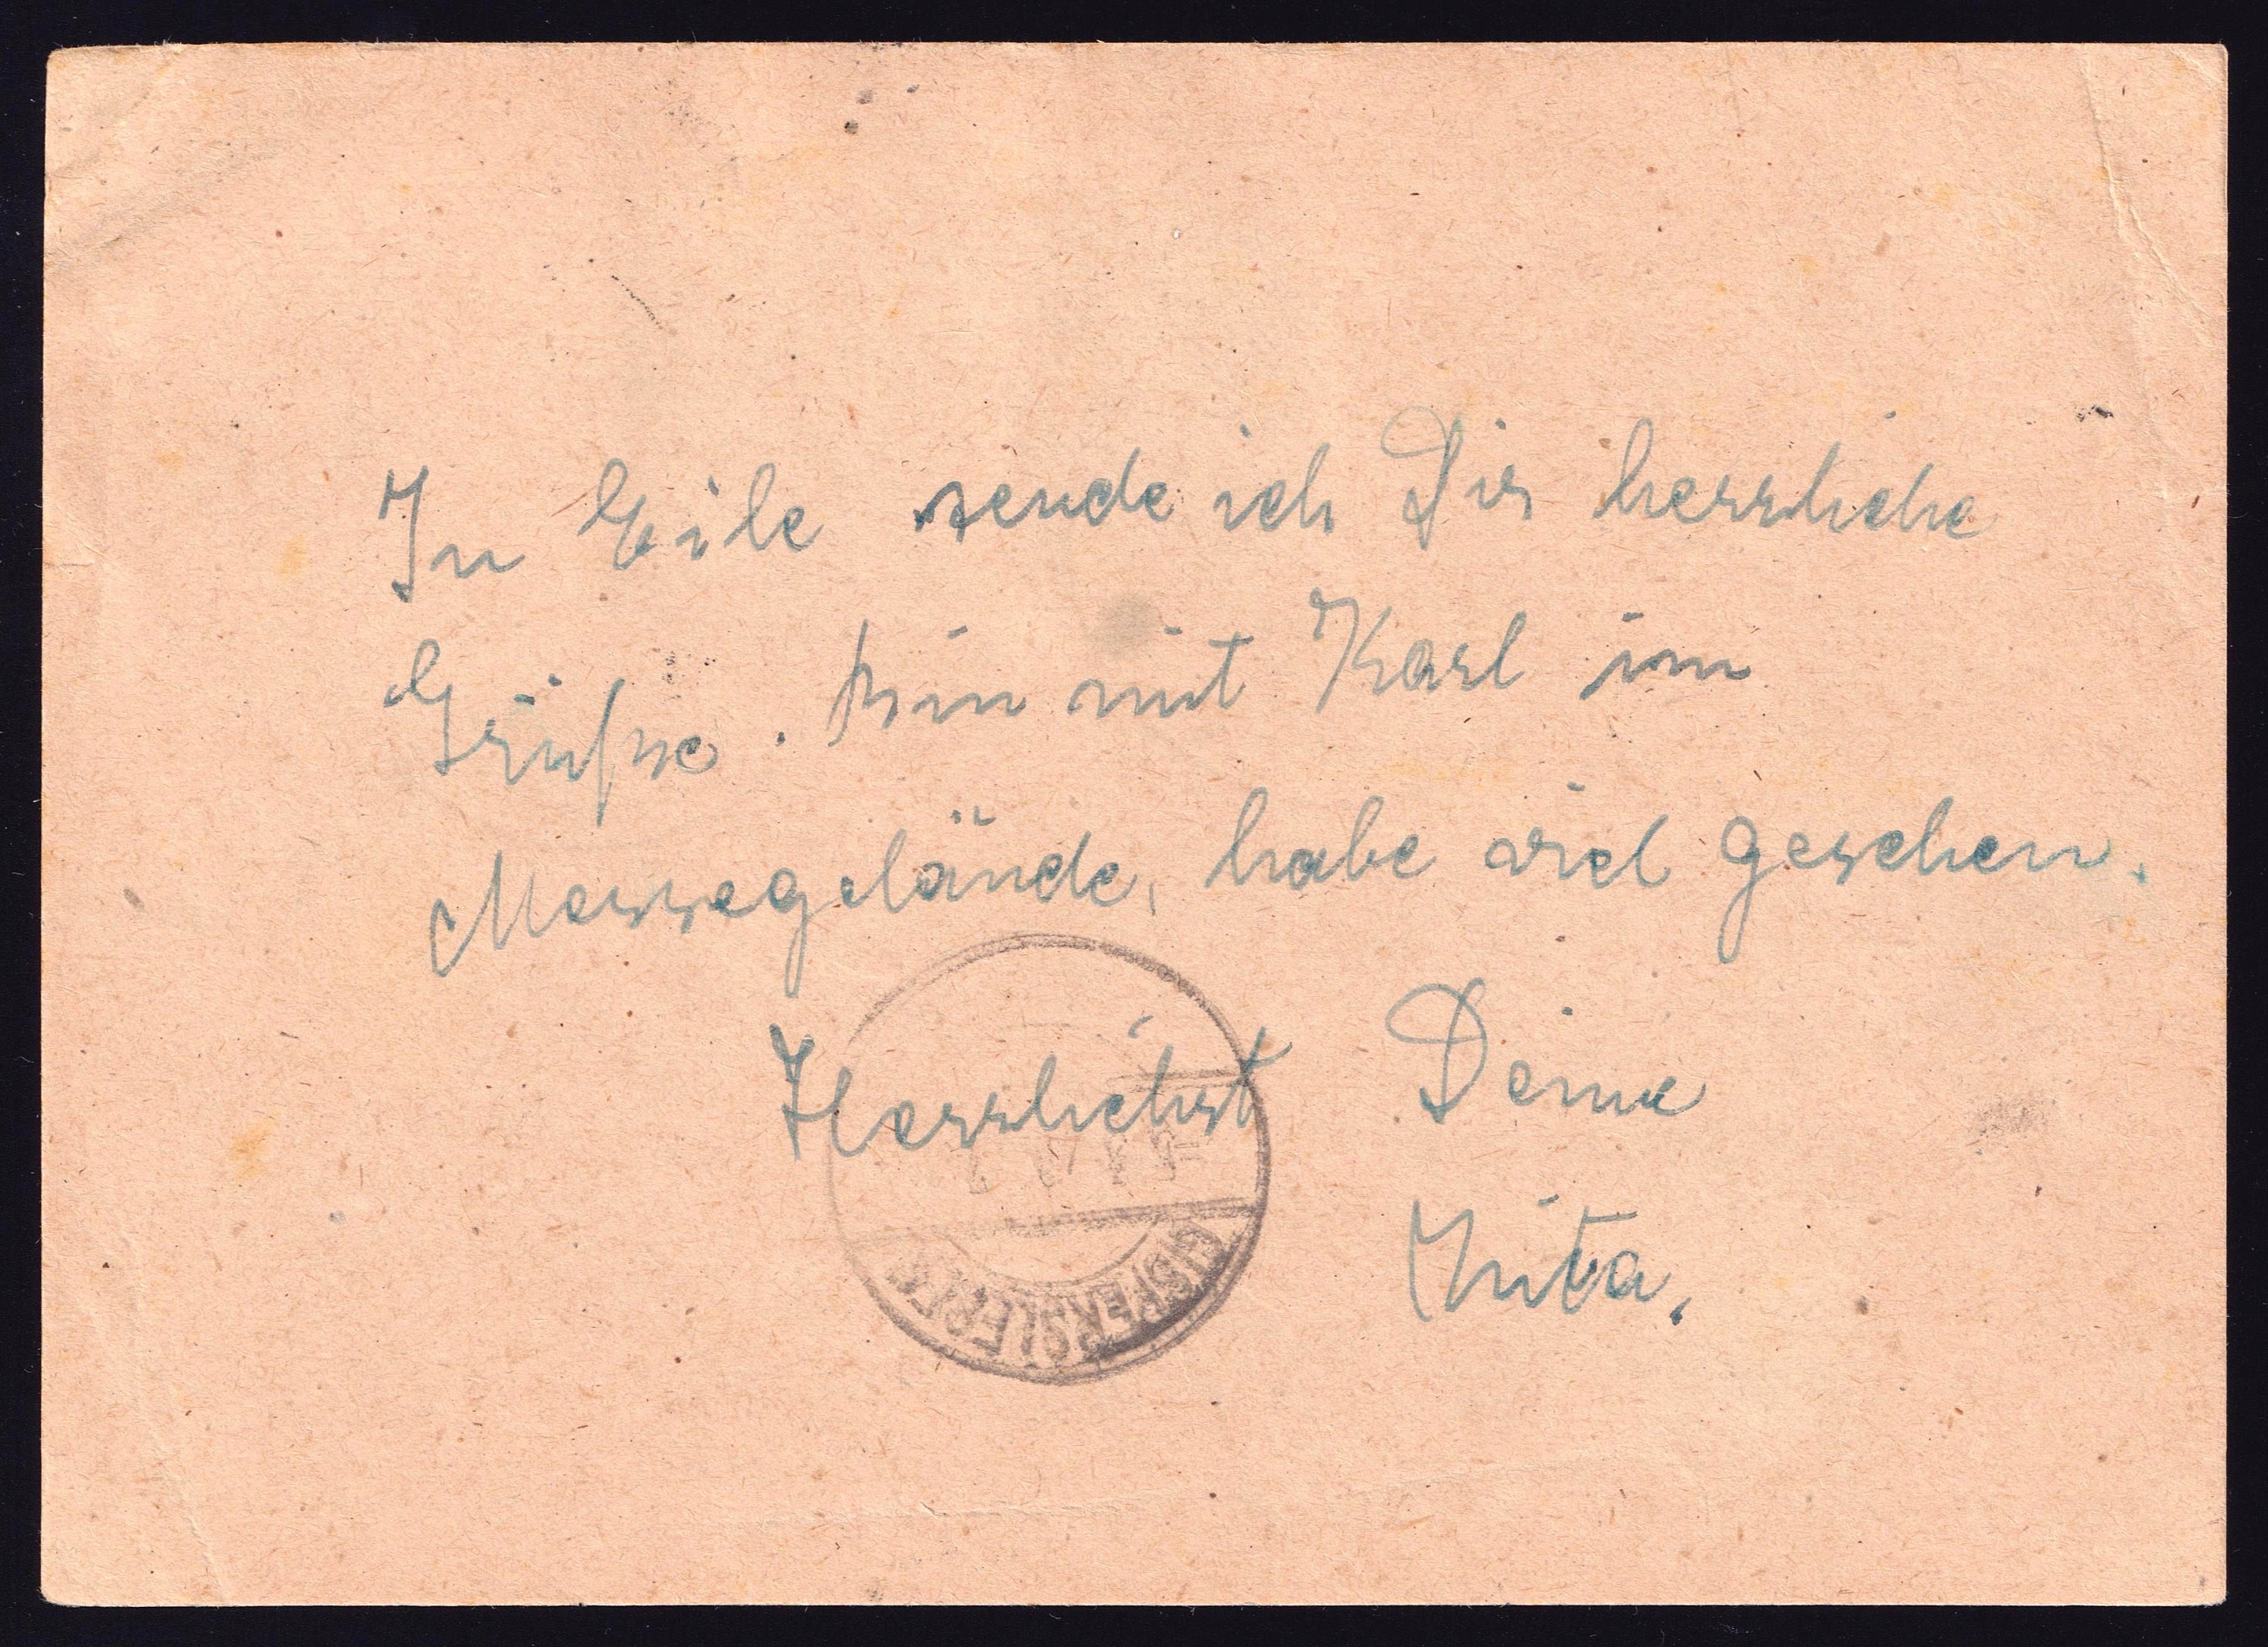 In Eile sende ich Dir herrliche
Grüße. bin mit Karl im
Messegelände, habe viel gesehen.
Herrlichst Deine
GISPERSLEBEN